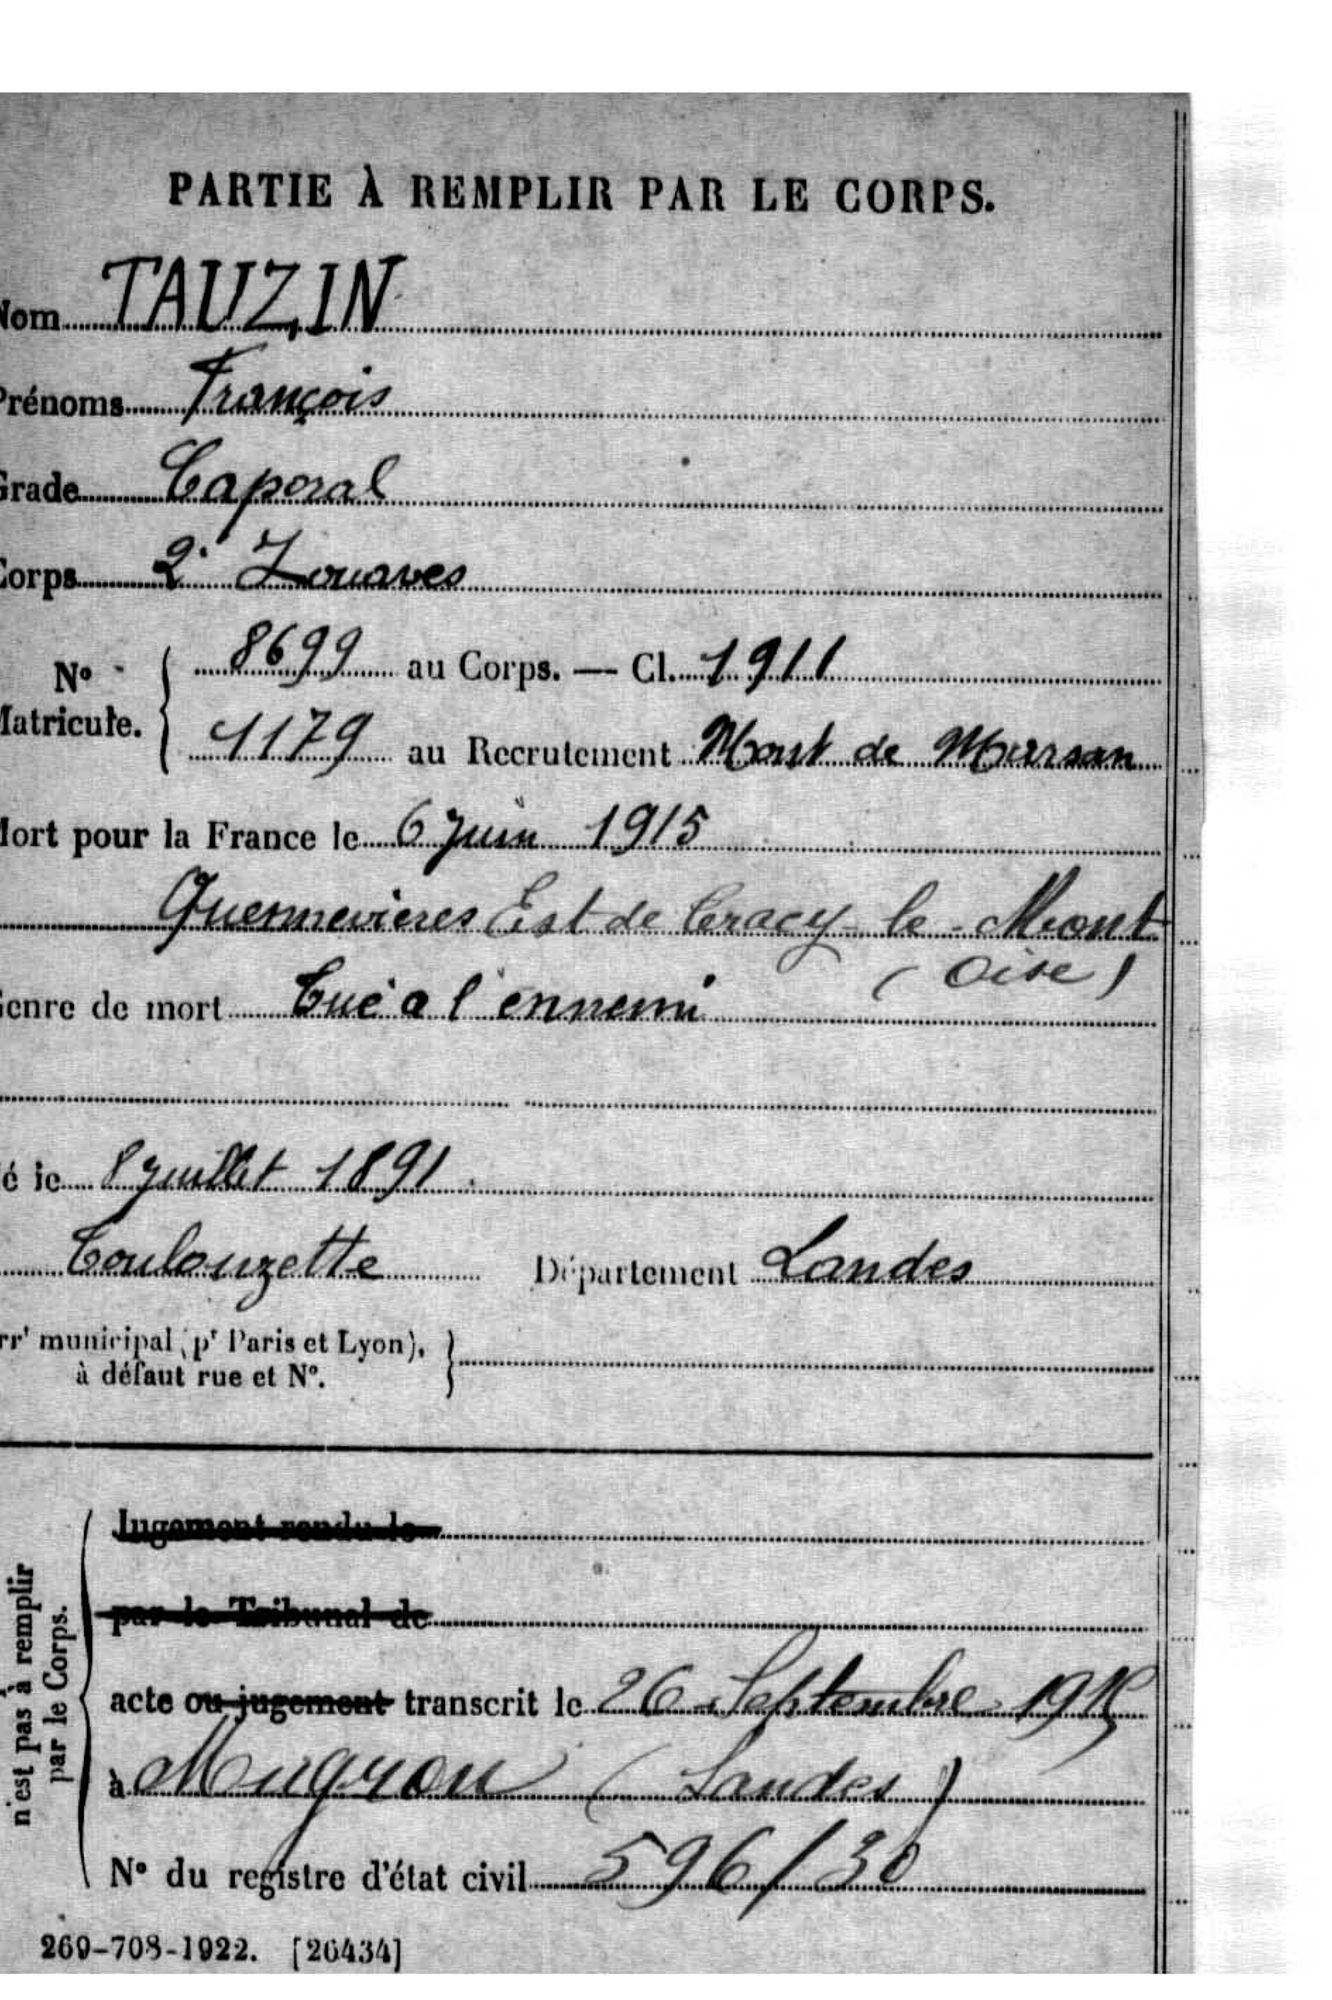 PARTIE À REMPLIR PAR LE CORPS.
Nom TAUZIN
Prénoms François
Grade Caporal
Corps 2e Zouaves
No Matricule. { 8699 au Corps. — Cl. 1911
1179 au Recrutement Mont de Marsan
Mort pour la France le 6 Juin 1915
Quennevieres Est de Tracy-le-Mont
(Oise)
Genre de mort Tué a l'ennemi
é le 8 Juillet 1891
Toulouzette Département Landes
rrt municipal (pr Paris et Lyon),
à défaut rue et No. }
n'est pas à remplir
par le Corps.
Jugement rendu le
par le Tribunal de
acte ou jugement transcrit le 26 Septembre 1915
à Mugron (Landes)
No du registre d'état civil 596/30
269-708-1922. [26434]